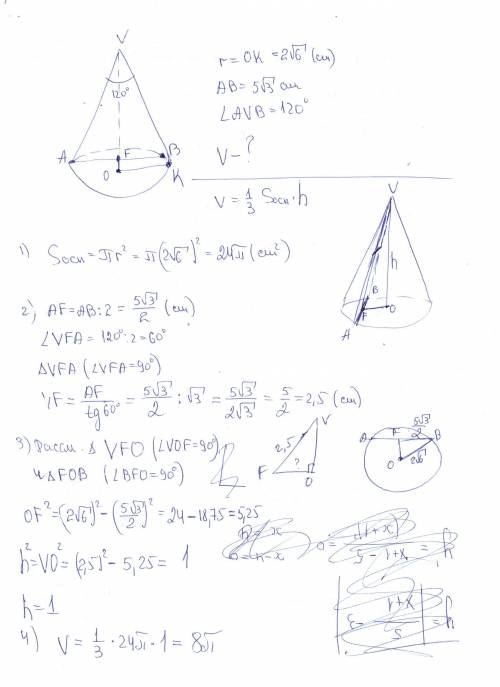 V
120°
A
F
B
O
K
r = OK = 2√6 (см)
AB = 5√3 см
∠AVB = 120°
V - ?
V = 1/3 Sосн·h
V
h
B
F
O
A
1) Sосн = πr² = π(2√6)² = 24π (см²)
2) AF = AB : 2 = 5√3/2 (см)
∠VFA = 120° : 2 = 60°
ΔVFA (∠VFA = 90°)
VF = AF/tg60° = 5√3/2 : √3 = 5√3/2√3 = 5/2 = 2,5 (см)
3) Рассм. Δ VFO (∠VOF = 90°)
и ΔFOB (∠BFO = 90°)
V
2,5
F
?
O
A
F
5√3/2
B
O
2√6
OF² = (2√6)² - (5√3/2)² = 24 - 18,75 = 5,25
h² = VO² = (2,5)² - 5,25 = 1
h = 1
4) V = 1/3 · 24π · 1 = 8π